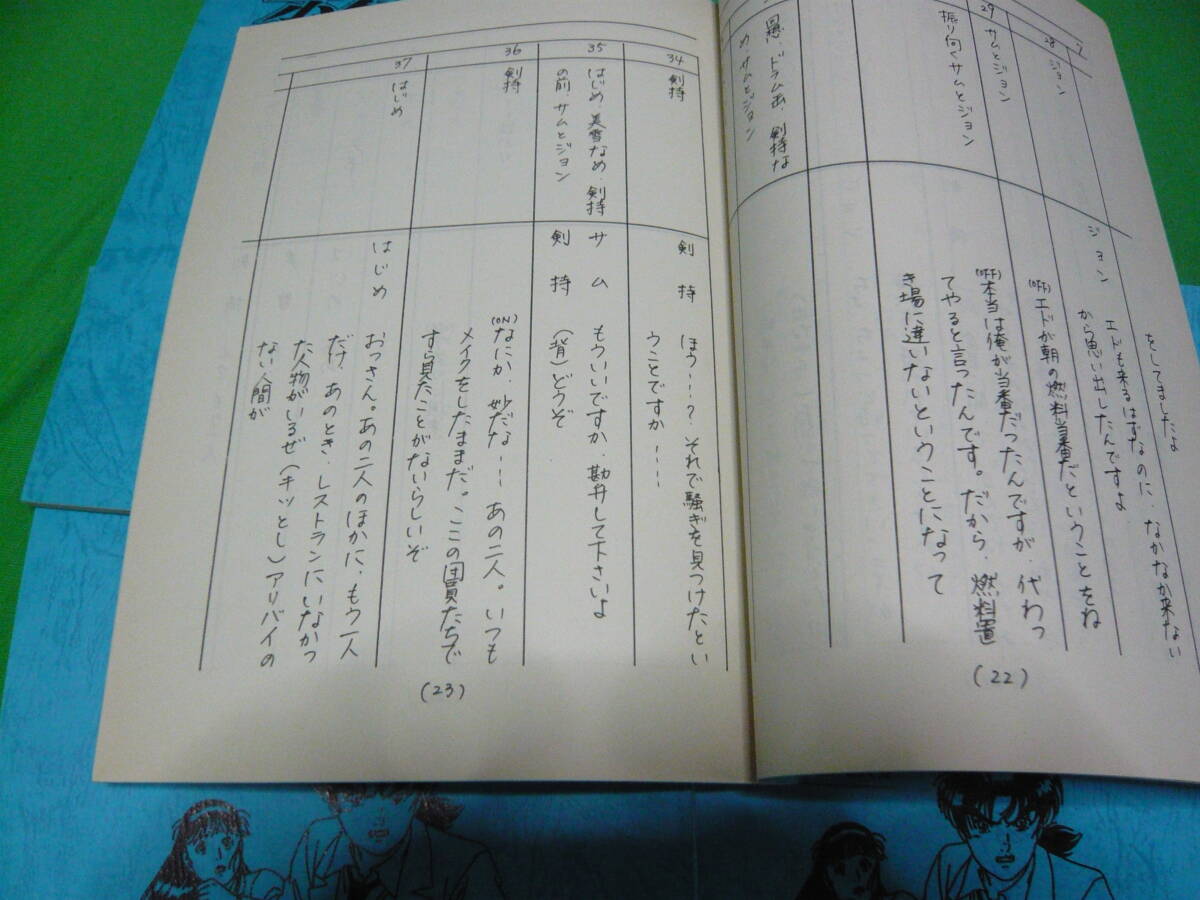 28
ジョン
29
サムとジョン
振り向くサムとジョン
回想・ドラム缶、剣持な
め、サムとジョン
をしてましたよ
ジョン
エドも来るはずなのに、なかなか来ない
から思い出したんですよ
(OFF)エドが朝の燃料当番だということをね
(OFF)本当は俺が当番だったんですが、代わっ
てやると言ったんです。だから、燃料置
き場に違いないということになって
(22)
34
剣持
剣持
ほう---?それで騒ぎを見つけたとい
うことですか----
35
はじめ、美雪なめ、剣持
の前、サムとジョン
サム
もういいですか、勘弁して下さいよ
剣持
(背)どうぞ
36
剣持
(ON)なにか、妙だな---あの二人。いつも
メイクをしたままだ。ここの団員たちで
すら見たことがないらしいぞ
37
はじめ
はじめ
おっさん。あの二人のほかに、もう一人
だけ、あのとき、レストランにいなかっ
た人物がいるぜ(キッとし)アリバイの
ない人間が
(23)